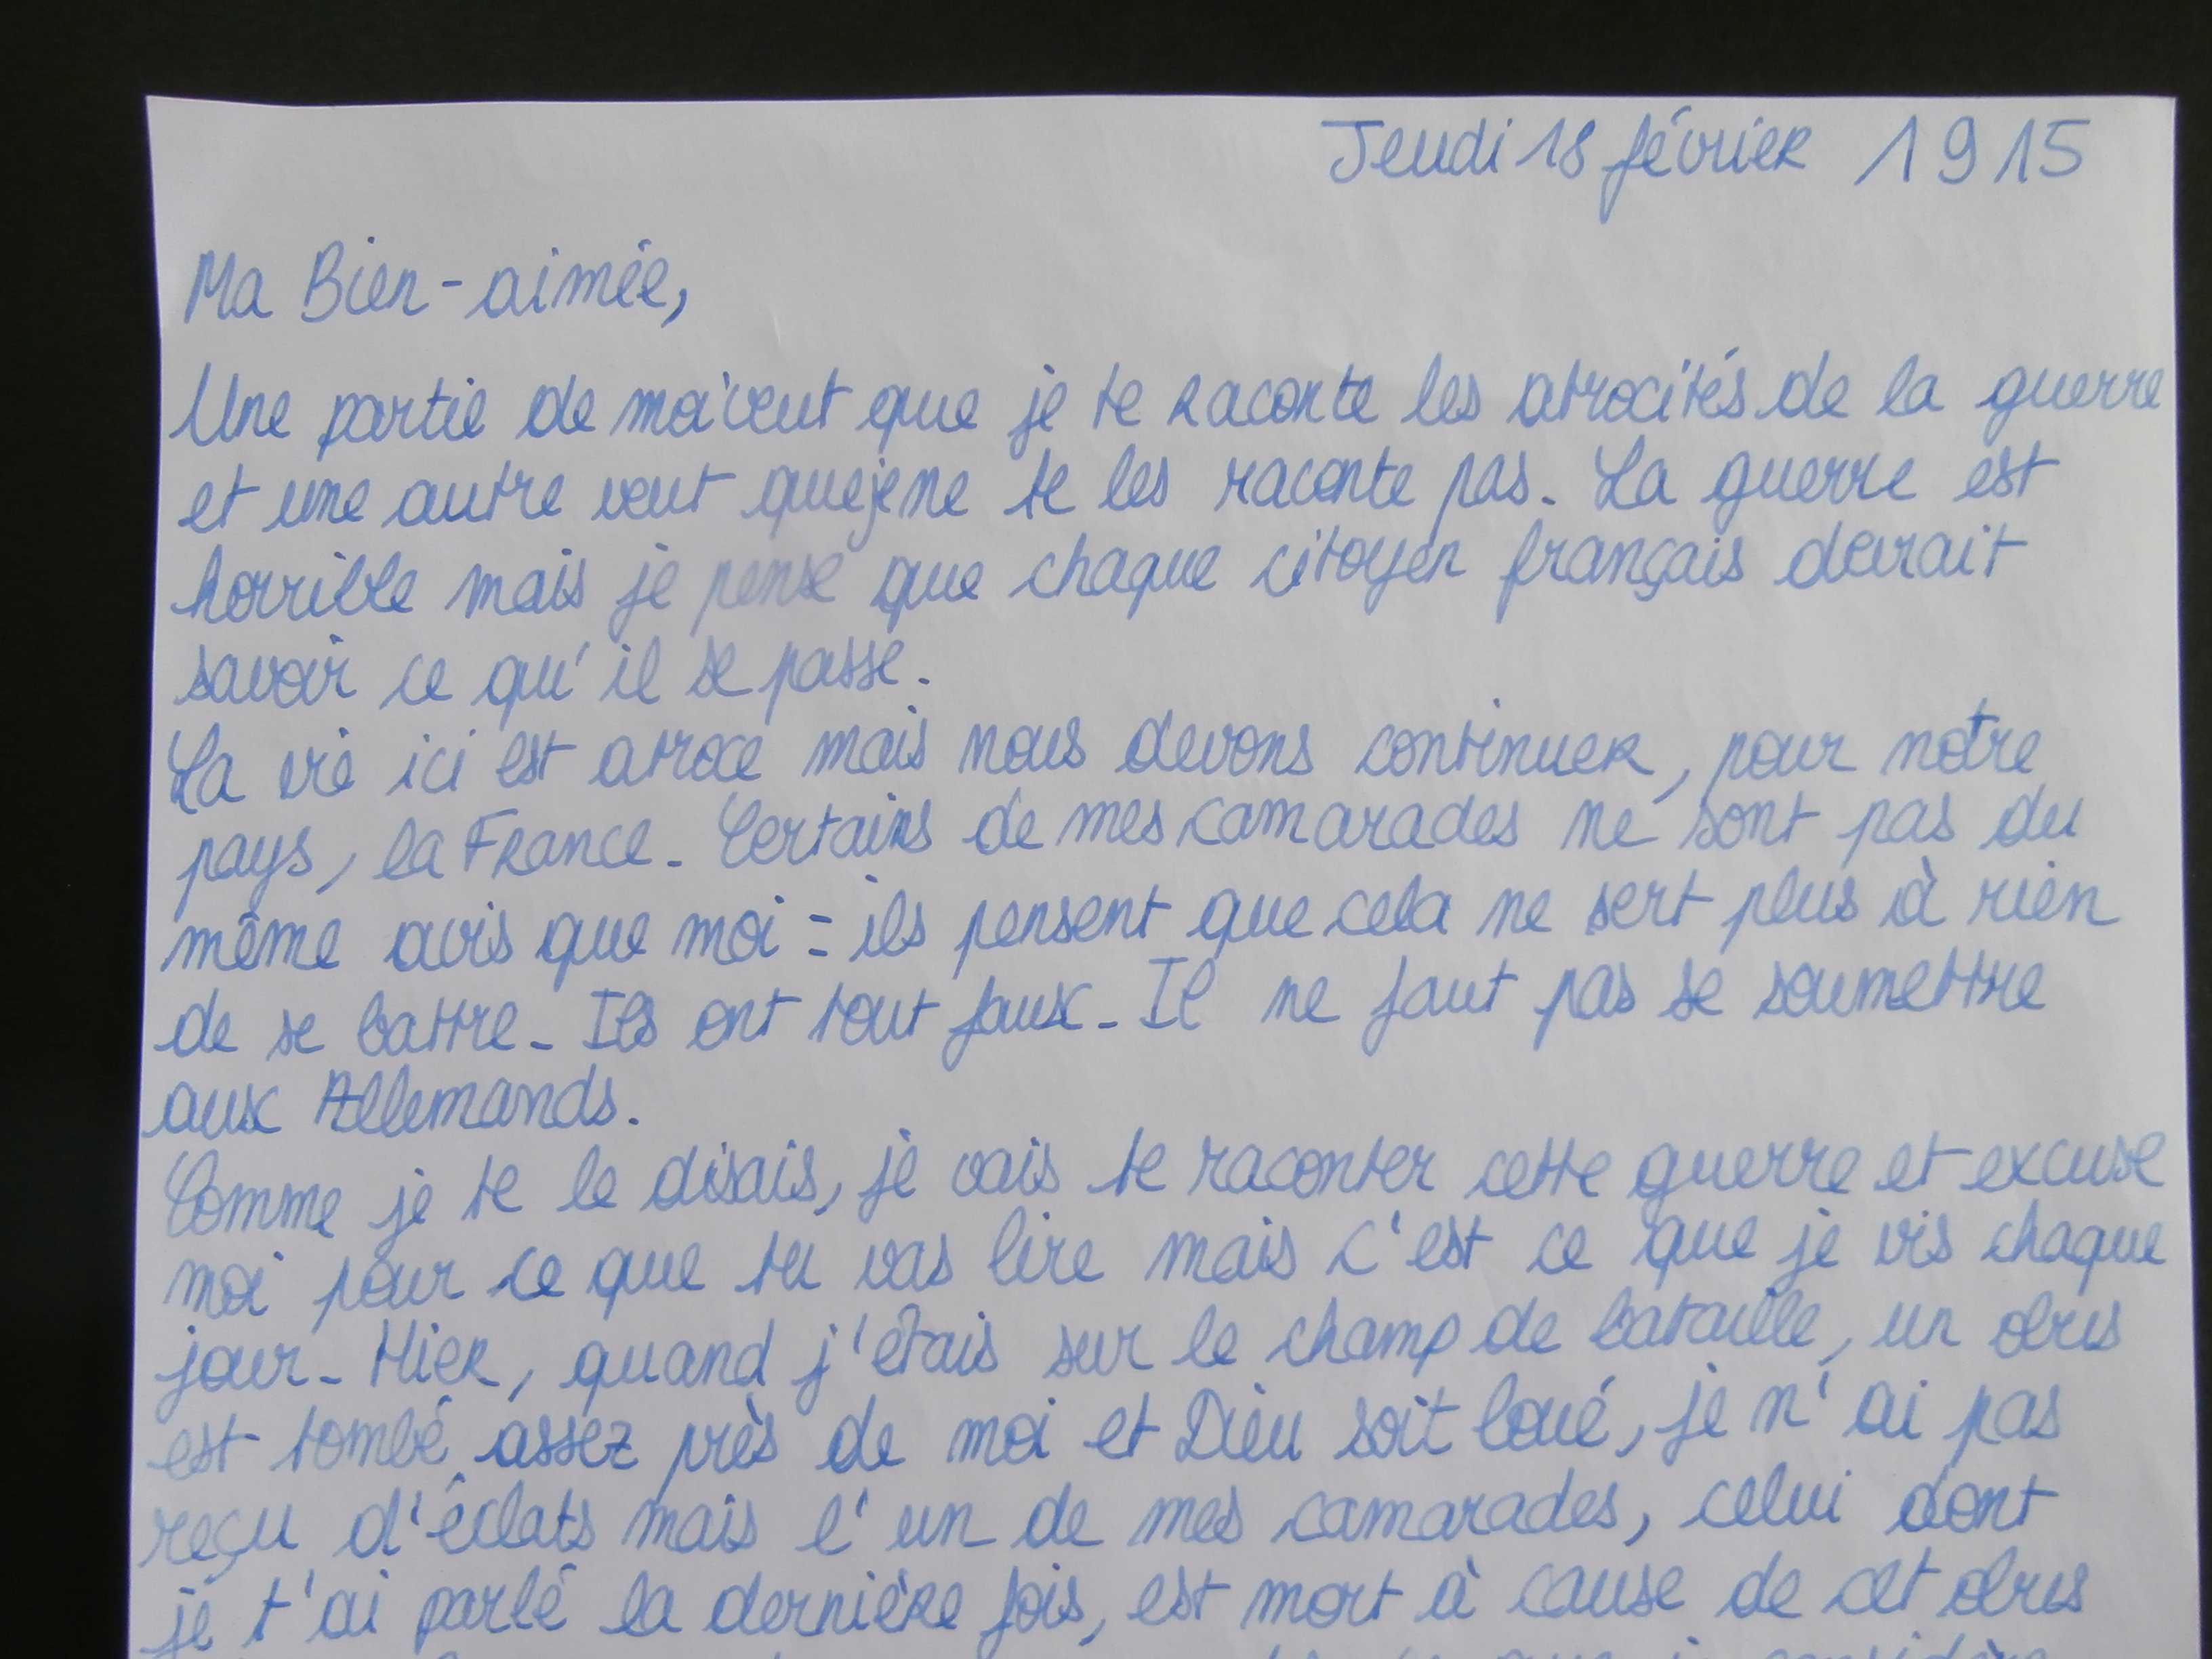 Jeudi 18 février 1915
Ma Bien-aimée,
Une partie de moi veut que je te raconte les atrocités de la guerre
et une autre veut que je ne te les raconte pas. La guerre est
horrible mais je pense que chaque citoyen français devrait
savoir ce qu'il se passe.
La vie ici est atroce mais nous devons continuer, pour notre
pays, la France. Certains de mes camarades ne sont pas du
même avis que moi : ils pensent que cela ne sert plus à rien
de se battre. Ils ont tout faux. Il ne faut pas se soumettre
aux Allemands.
Comme je te le disais, je vais te raconter cette guerre et excuse
moi pour ce que tu vas lire mais c'est ce que je vis chaque
jour. Hier, quand j'étais sur le champ de bataille, un obus
est tombé assez près de moi et Dieu soit loué, je n'ai pas
reçu d'éclats mais l'un de mes camarades, celui dont
je t'ai parlé la dernière fois, est mort à cause de cet obus